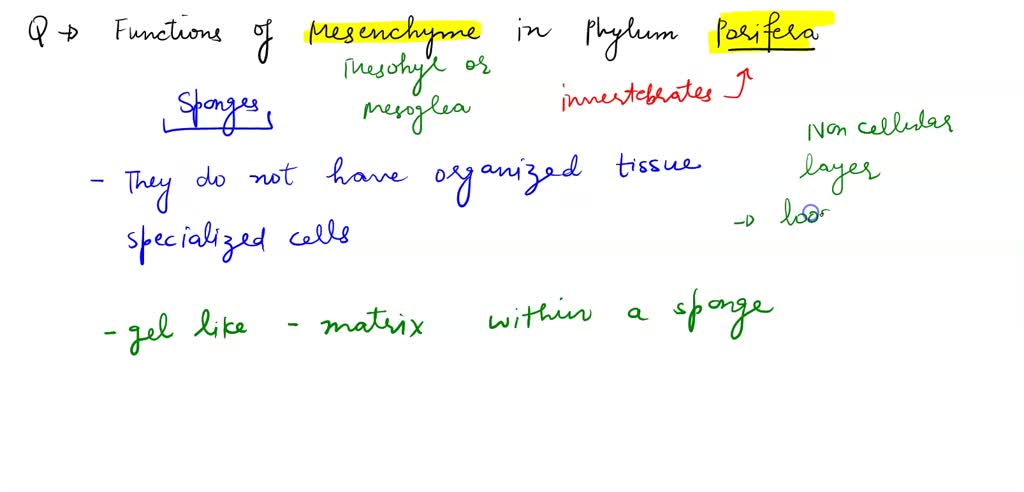 Q → Functions of Mesenchyme in Phylum Porifera
Mesohyl or
Mesoglea
invertebrates
Sponges
Non cellular
layer
- They do not have organized tissue
specialized cells
→ loo
- gel like - matrix within a sponge